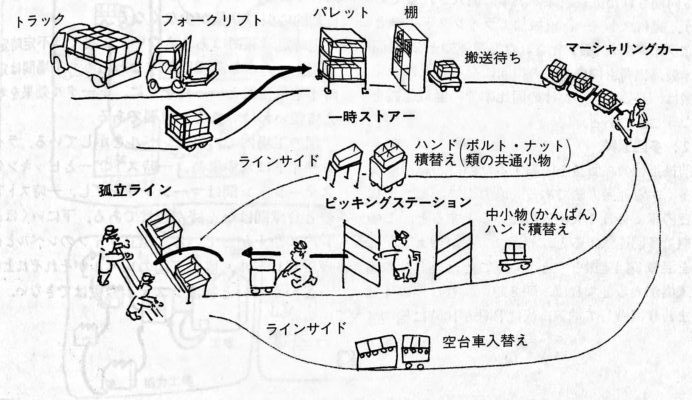 トラック
フォークリフト
パレット
棚
搬送待ち
マーシャリングカー
一時ストアー
ラインサイド
ハンド(ボルト・ナット
積替え(類の共通小物
孤立ライン
ピッキングステーション
中小物(かんばん)
ハンド積替え
ラインサイド
空台車入替え